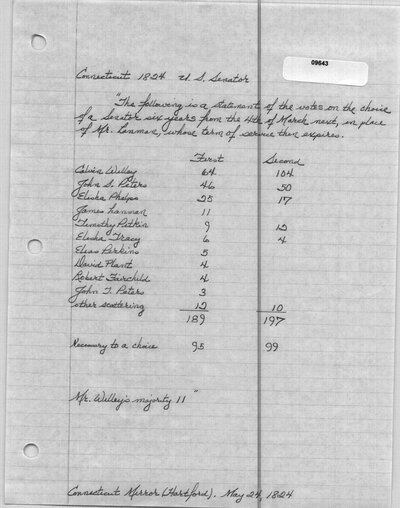 09643
Connecticut 1824 U.S. Senator
"The following is a statement of the votes on the choice
of a Senator six years from the 4th of March next, in place
of Mr. Lanman, whose term of service then expires.
First Second
Calvin Willey 64 104
John S. Peters 46 50
Elisha Phelps 25 17
James Lanman 11
Timothy Pitkin 9 12
Elisha Tracy 6 4
Elias Perkins 5
David Plant 4
Robert Fairchild 4
John T. Peters 3
other scattering 12 10
189 197
Necessary to a choice 95 99
Mr. Willey's majority 11"
Connecticut Mirror (Hartford). May 24, 1824